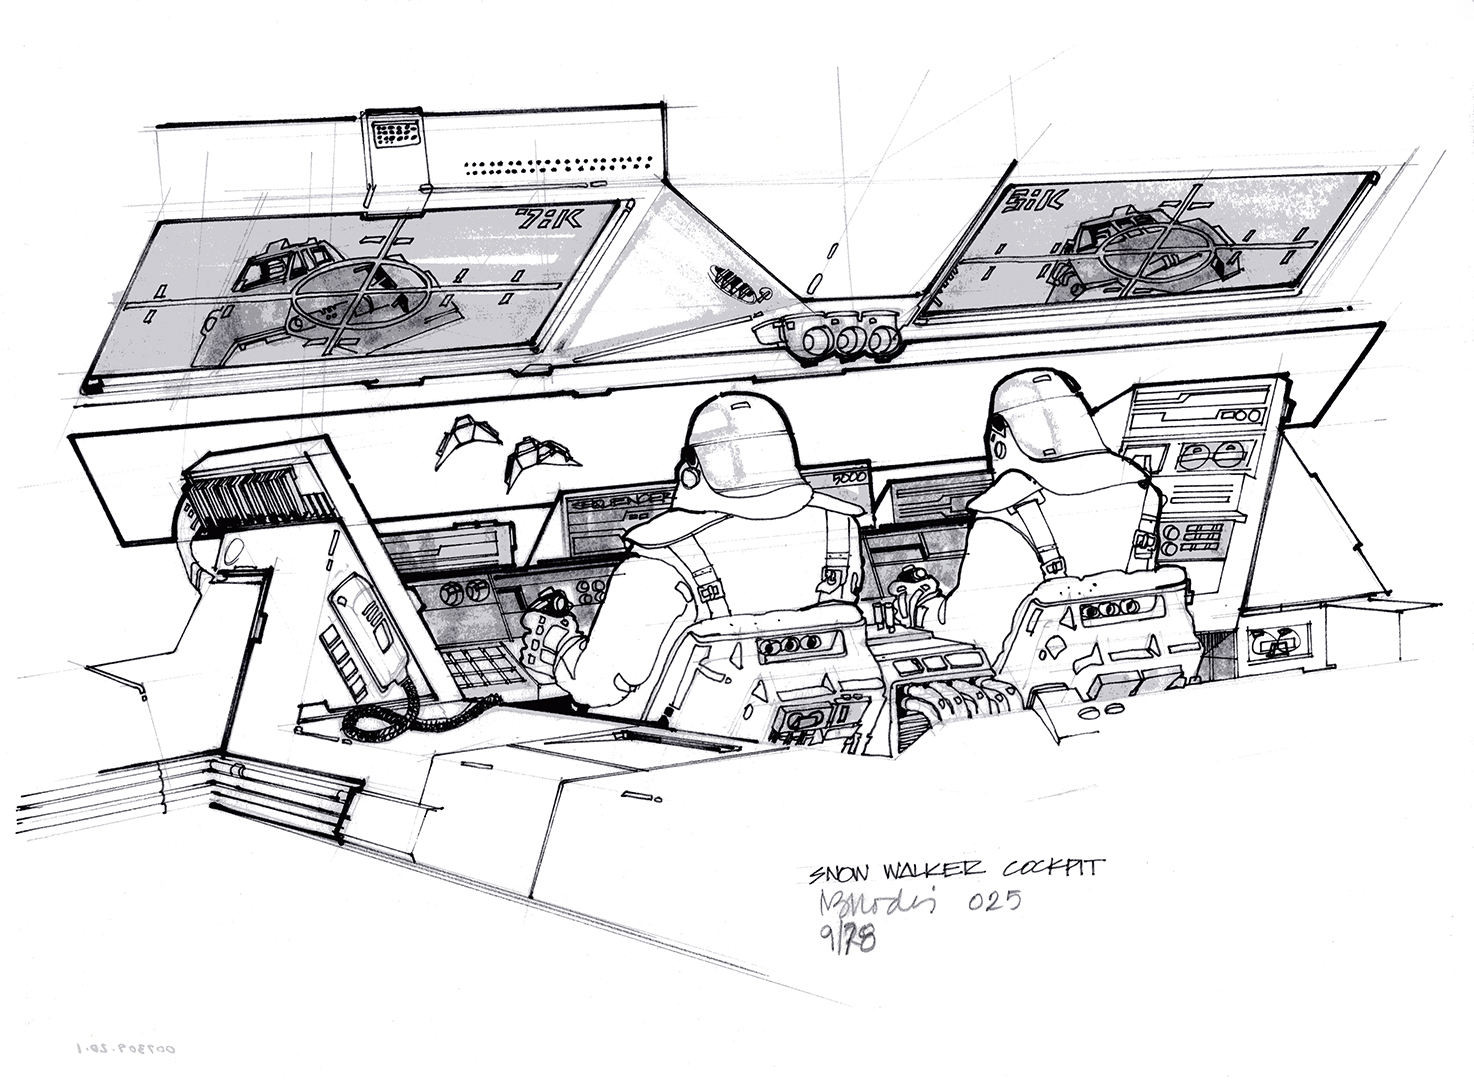 7:K
5:K
SEQUENCER
5000
SNOW WALKER COCKPIT
NRRodis 025
9/78
007309.20.1